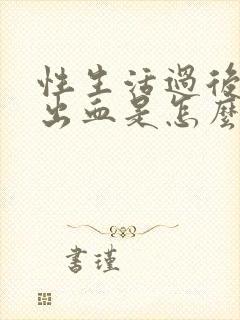 性生活過後
出血是怎麼
書瑾